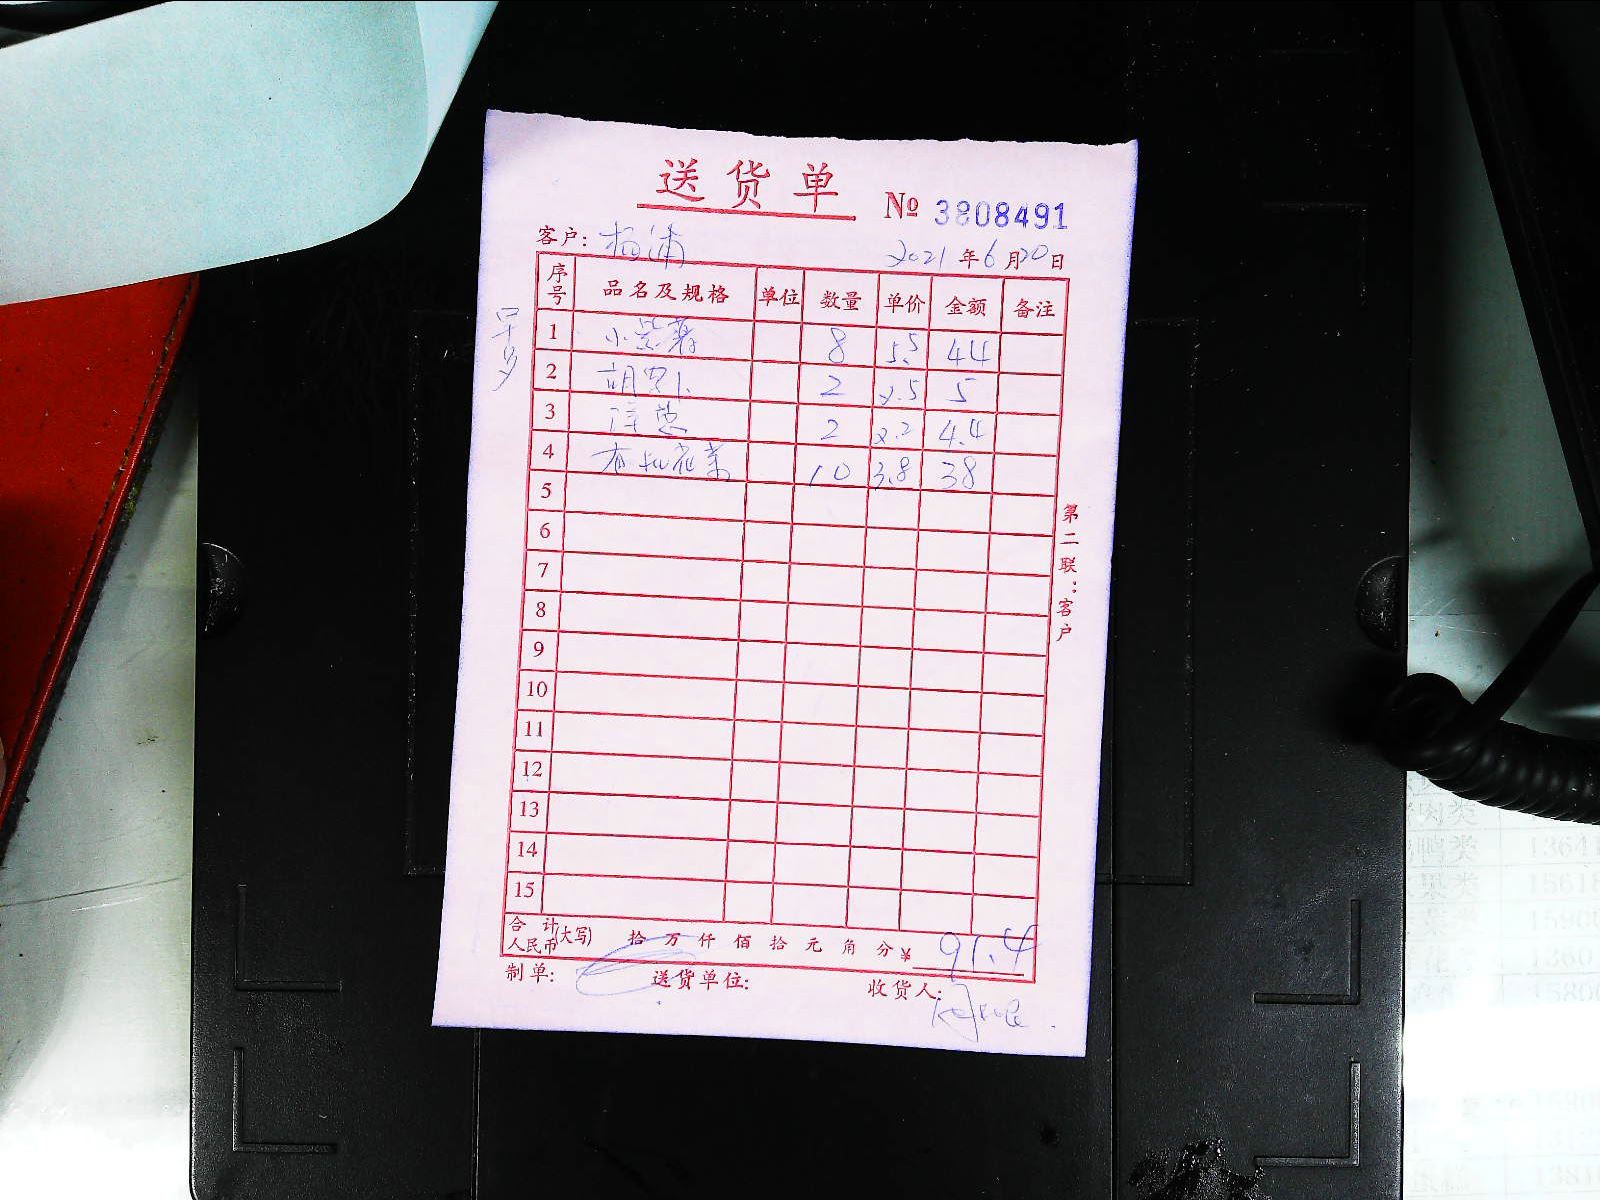 送货单
№ 3808491
客户: 杨浦
2021年6月20日
序号 品名及规格 单位 数量 单价 金额 备注
早多
1 小紫薯 8 5.5 44
2 胡罗卜 2 2.5 5
3 洋葱 2 2.2 4.4
4 有机花菜 10 3.8 38
5
6
7
8
9
10
11
12
13
14
15
第二联:客户
合计人民币(大写) 拾 万 仟 佰 拾 元 角 分 ¥ 91.4
制单: 送货单位: 收货人:
肉类
鸭类 1364
果类 15618